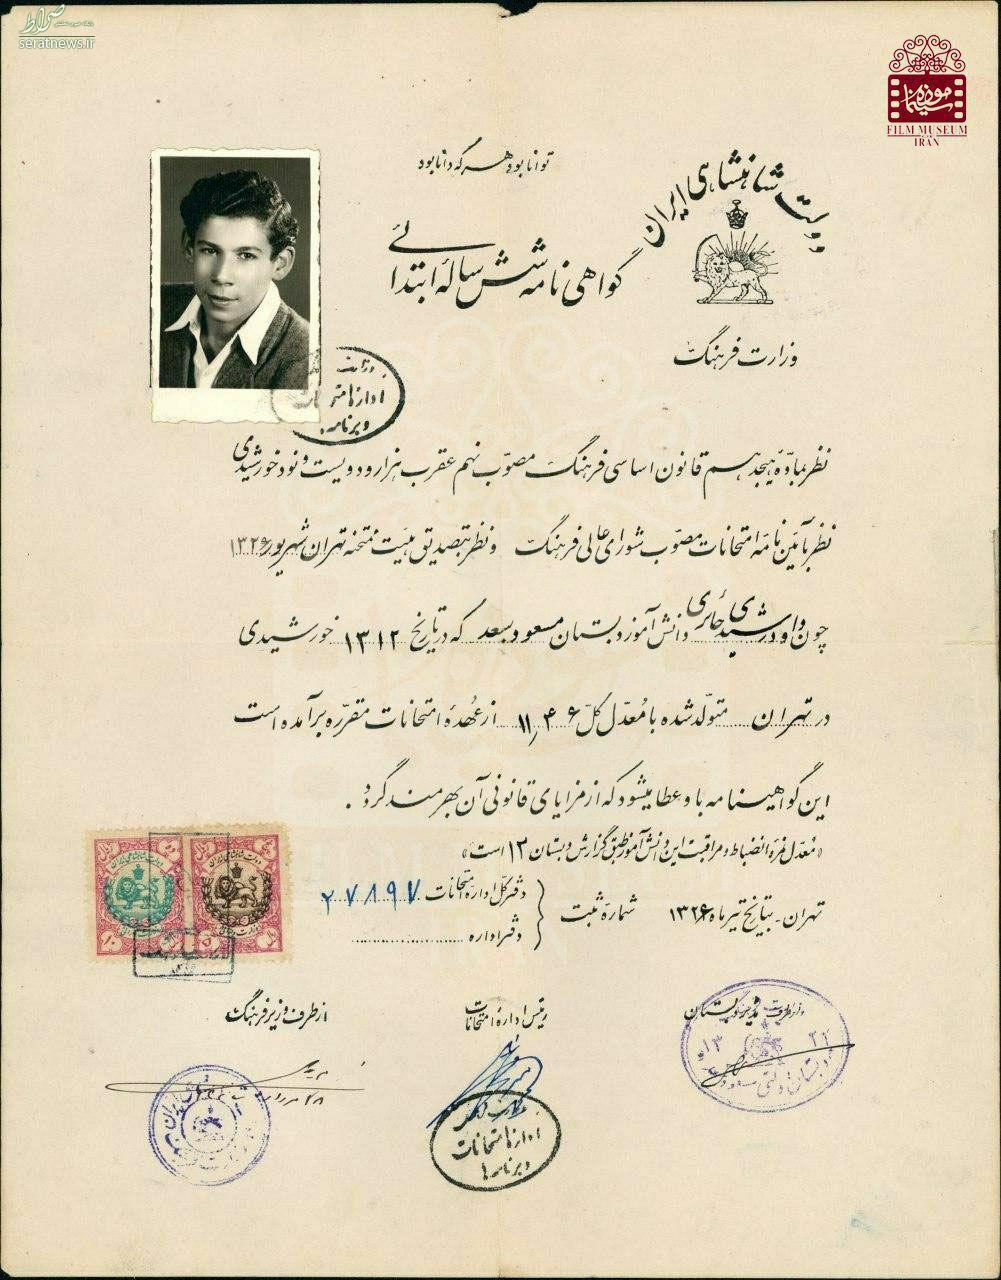 صراط
seratnews.ir
موزه سینما
FILM MUSEUM
IRAN
توانا بود هر که دانا بود
دولت شاهنشاهی ایران
گواهی نامه شش ساله ابتدائی
وزارت فرهنگ
وزارت
اداره امتحانات
و برنامه‌ها
نظر بماده هیجدهم قانون اساسی فرهنگ مصوب نهم عقرب هزار و دویست و نود خورشیدی
نظر بآئین نامه امتحانات مصوب شورای عالی فرهنگ و نظر بتصدیق هیئت ممتحنه تهران شهریور ۱۳۲۶
چون داود رشیدی حائری دانش آموز دبستان مسعود سعد که در تاریخ ۱۳۱۲ خورشیدی
در تهران متولد شده با معدل کل ۱۱٫۴۶ از عهده امتحانات مقرره برآمده است
این گواهینامه باو عطا میشود که از مزایای قانونی آن بهره‌مند گردد.
«معدل نمره انضباط و مراقبت این دانش آموز طبق گزارش دبستان ۱۳ است»
تهران - بتاریخ تیر ماه ۱۳۲۶ شماره ثبت
دفتر کل اداره امتحانات ۲۷۸۹۷
دفتر اداره
دولت شاهنشاهی ایران
۱۰
۵
مدیر دبستان
رئیس اداره امتحانات
از طرف وزیر فرهنگ
۱۳ ۲۲
دبستان دولتی مسعود سعد
اداره امتحانات
و برنامه‌ها